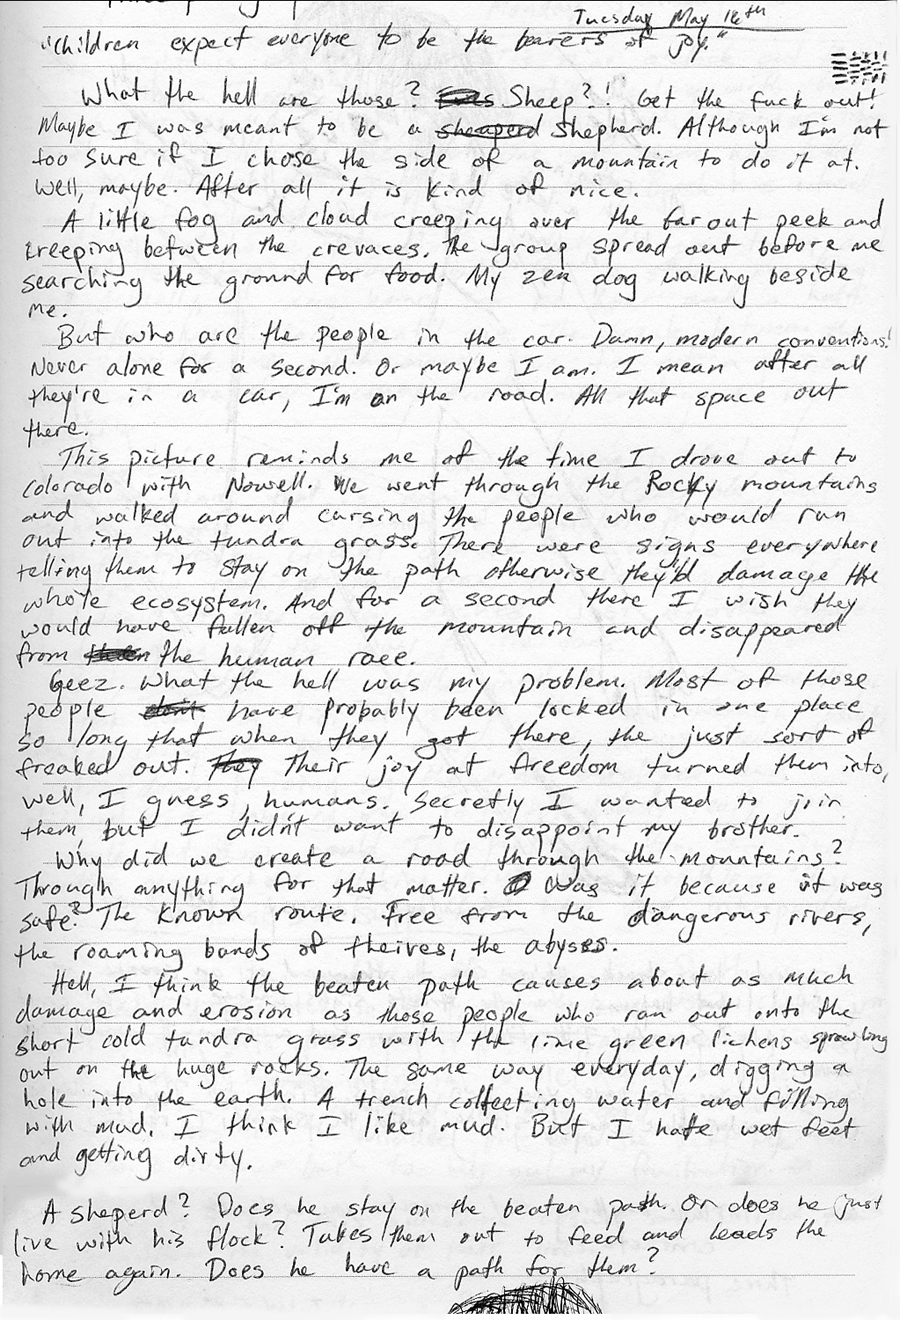 Tuesday May 16th
"Children expect everyone to be the bearers of joy."
What the hell are those? Sheep?! Get the fuck out!
Maybe I was meant to be a sheaperd Shepherd. Although I'm not
too sure if I chose the side of a mountain to do it at.
Well, maybe. After all it is kind of nice.
A little fog and cloud creeping over the far out peek and
creeping between the crevaces. The group spread out before me
searching the ground for food. My zen dog walking beside
me.
But who are the people in the car. Damn, modern conventions!
Never alone for a second. Or maybe I am. I mean after all
they're in a car, I'm on the road. All that space out
there.
This picture reminds me of the time I drove out to
Colorado with Nowell. We went through the Rocky mountains
and walked around cursing the people who would run
out into the tundra grass. There were signs everywhere
telling them to stay on the path otherwise they'd damage the
whole ecosystem. And for a second there I wish they
would have fallen off the mountain and disappeared
from the human race.
Geez. What the hell was my problem. Most of those
people don't have probably been locked in one place
so long that when they got there, the just sort of
freaked out. They Their joy at freedom turned them into,
well, I guess, humans. Secretly I wanted to join
them but I didn't want to disappoint my brother.
Why did we create a road through the mountains?
Through anything for that matter. Was it because it was
safe? The known route. Free from the dangerous rivers,
the roaming bands of theives, the abyss.
Hell, I think the beaten path causes about as much
damage and erosion as those people who ran out onto the
short cold tundra grass with the lime green lichens sprawling
out on the huge rocks. The same way everyday, digging a
hole into the earth. A trench collecting water and filling
with mud. I think I like mud. But I hate wet feet
and getting dirty.
A sheperd? Does he stay on the beaten path. Or does he just
live with his flock? Takes them out to feed and leads the
home again. Does he have a path for them?